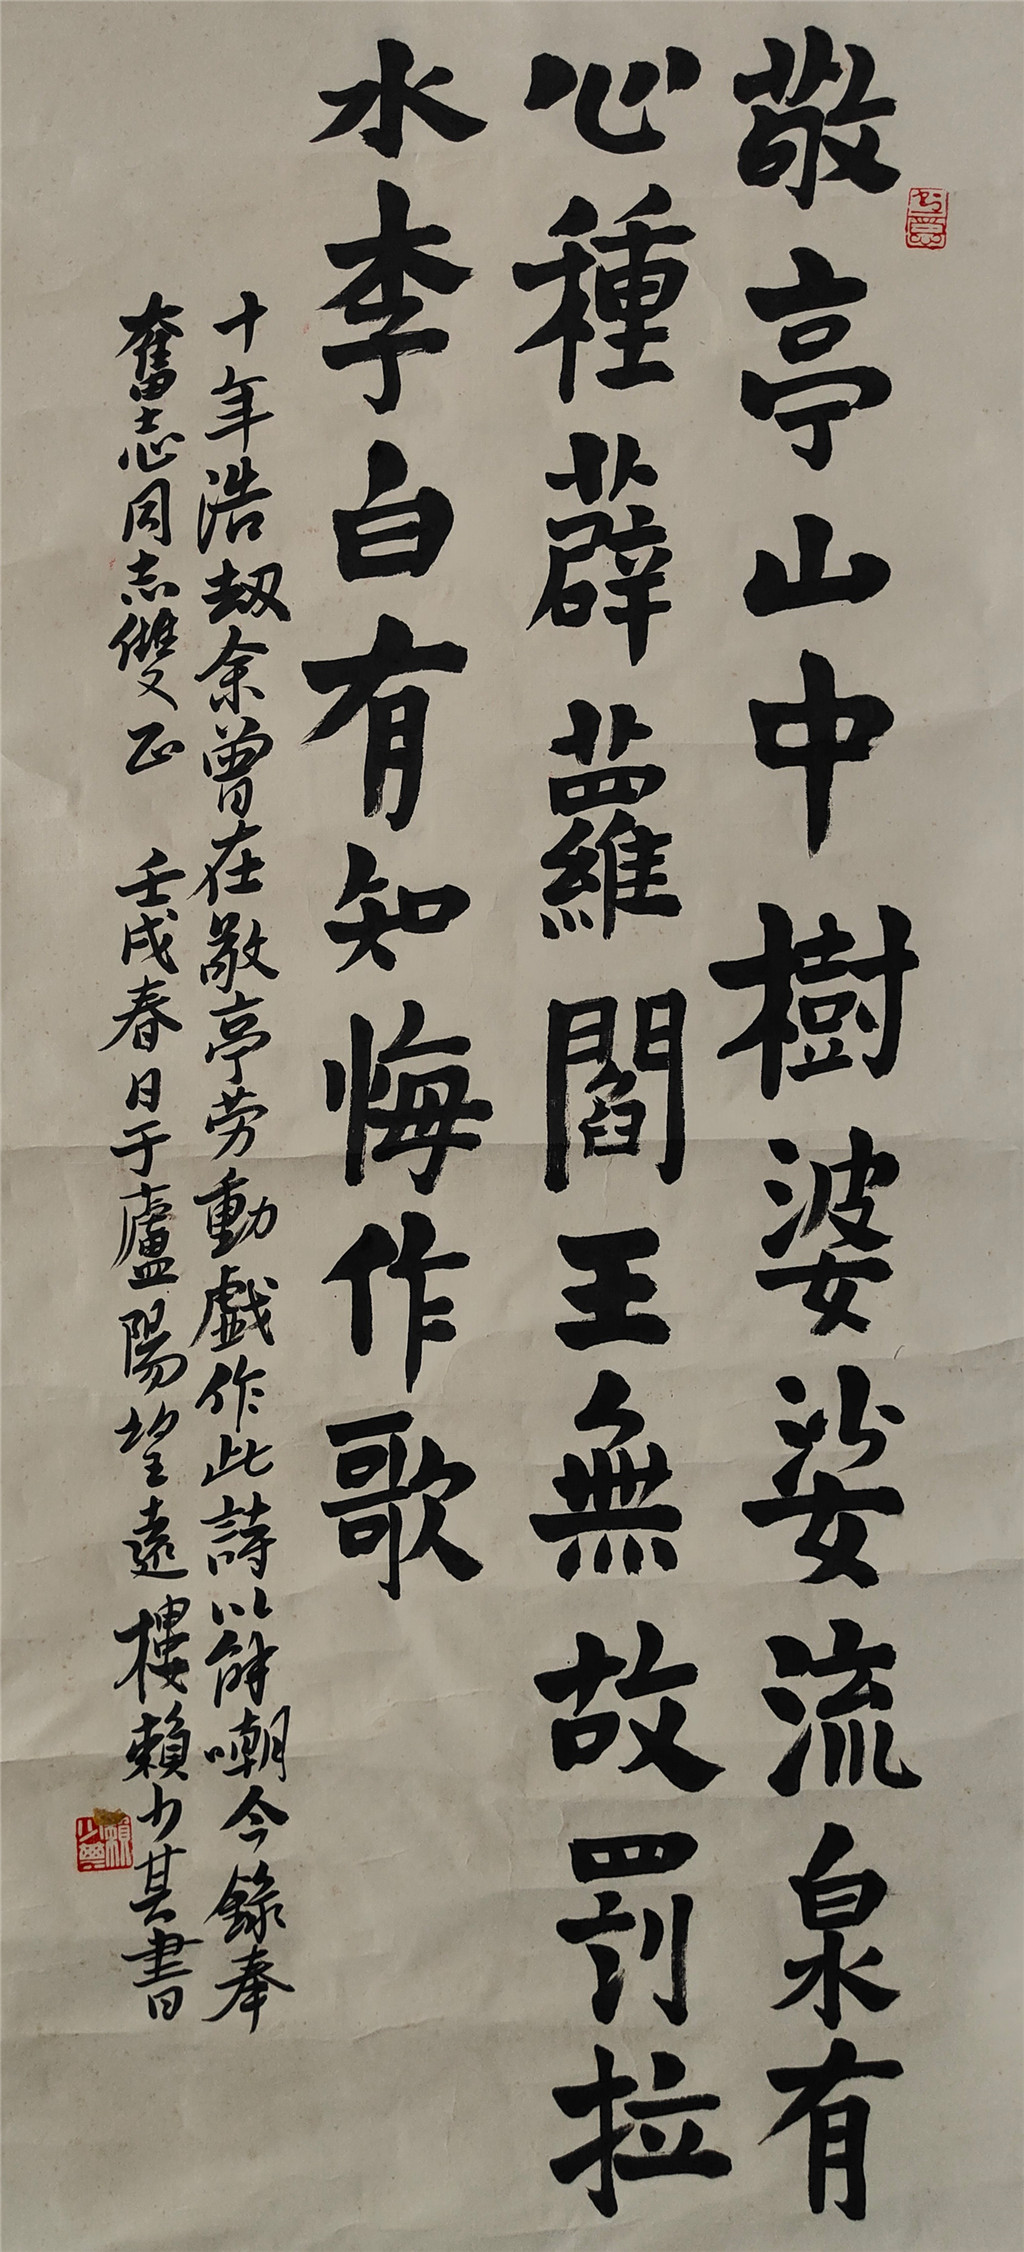 敬亭山中樹婆娑流泉有
心種薜蘿閻王無故罰拉
水李白有知悔作歌
十年浩劫余曾在敬亭劳動戲作此詩以解嘲今錄奉
奮志同志雙正 壬戌春日于廬陽望遠樓賴少其書